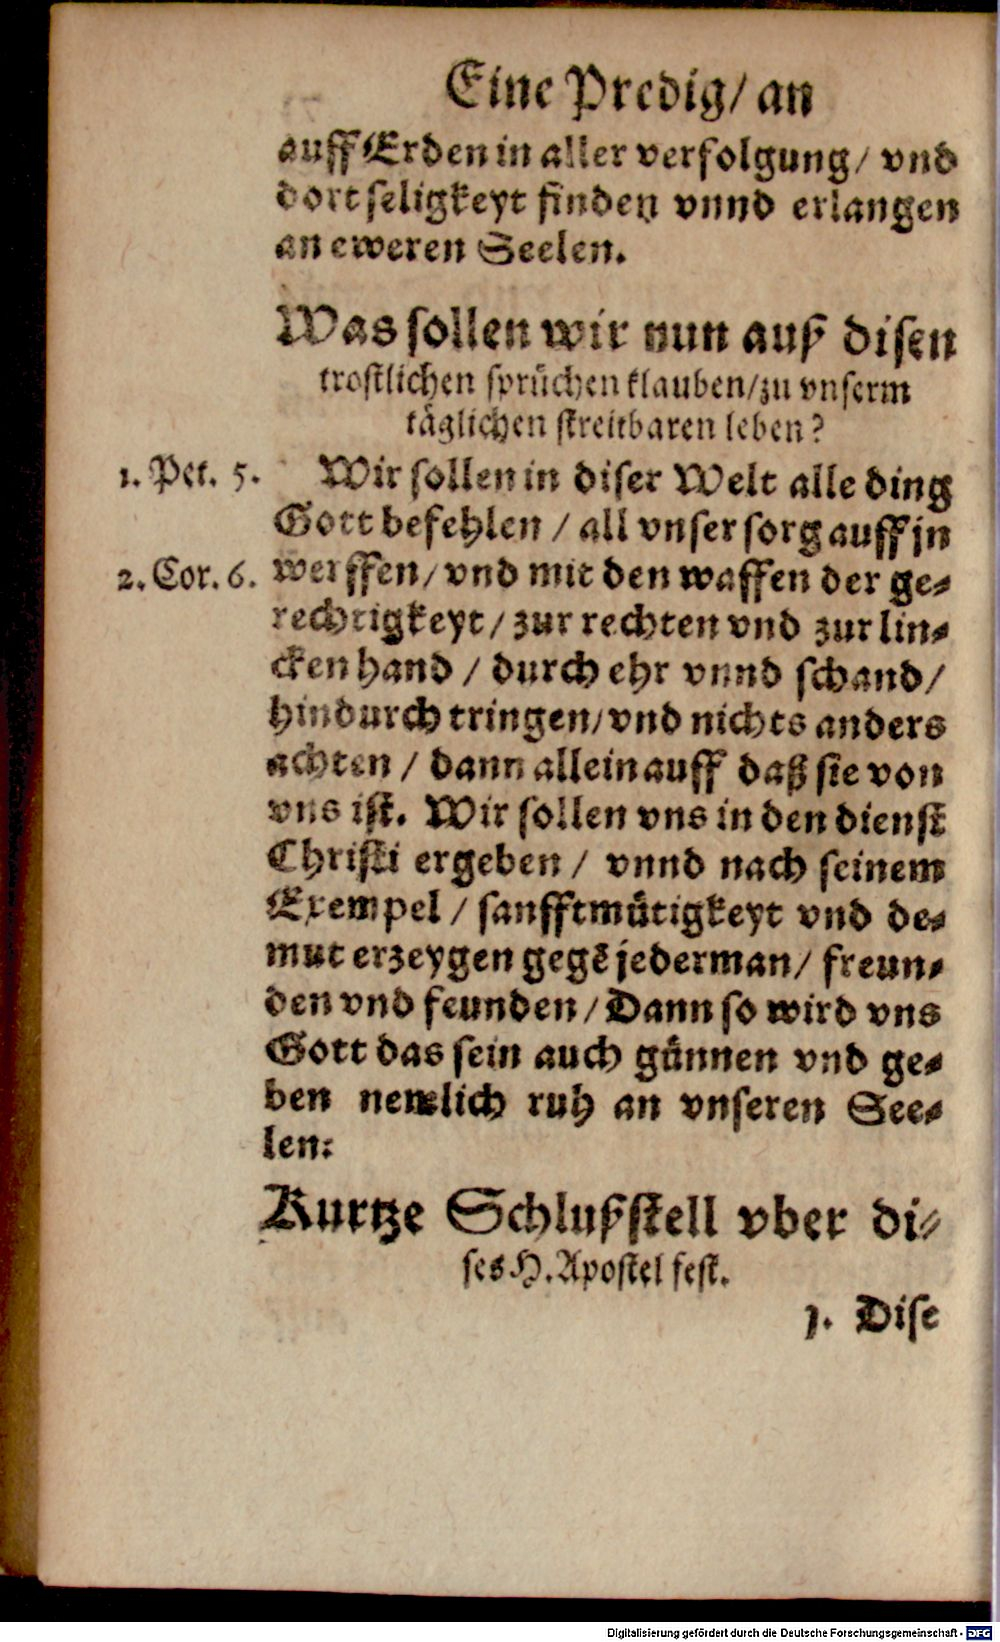 Eine Predig/ an
auff Erden in aller verfolgung/ vnd
dort seligkeyt finden vnnd erlangen
an eweren Seelen.
Was sollen wir nun auß disen
trostlichen sprüchen klauben/zu vnserm
täglichen streitbaren leben?
1. Pet. 5.
Wir sollen in diser Welt alle ding
Gott befehlen / all vnser sorg auff jn
2. Cor. 6.
werffen/ vnd mit den waffen der ge-
rechtigkeyt/ zur rechten vnd zur lin-
cken hand / durch ehr vnnd schand/
hindurch tringen/ vnd nichts anders
achten / dann allein auff daß sie von
vns ist. Wir sollen vns in den dienst
Christi ergeben / vnnd nach seinem
Exempel / sanfftmütigkeyt vnd de-
mut erzeygen gegē jederman/ freun-
den vnd feunden/ Dann so wird vns
Gott das sein auch günnen vnd ge-
ben nemlich ruh an vnseren See-
len:
Kurtze Schlußstell vber di-
ses H. Apostel fest.
1. Dise
Digitalisierung gefördert durch die Deutsche Forschungsgemeinschaft - DFG